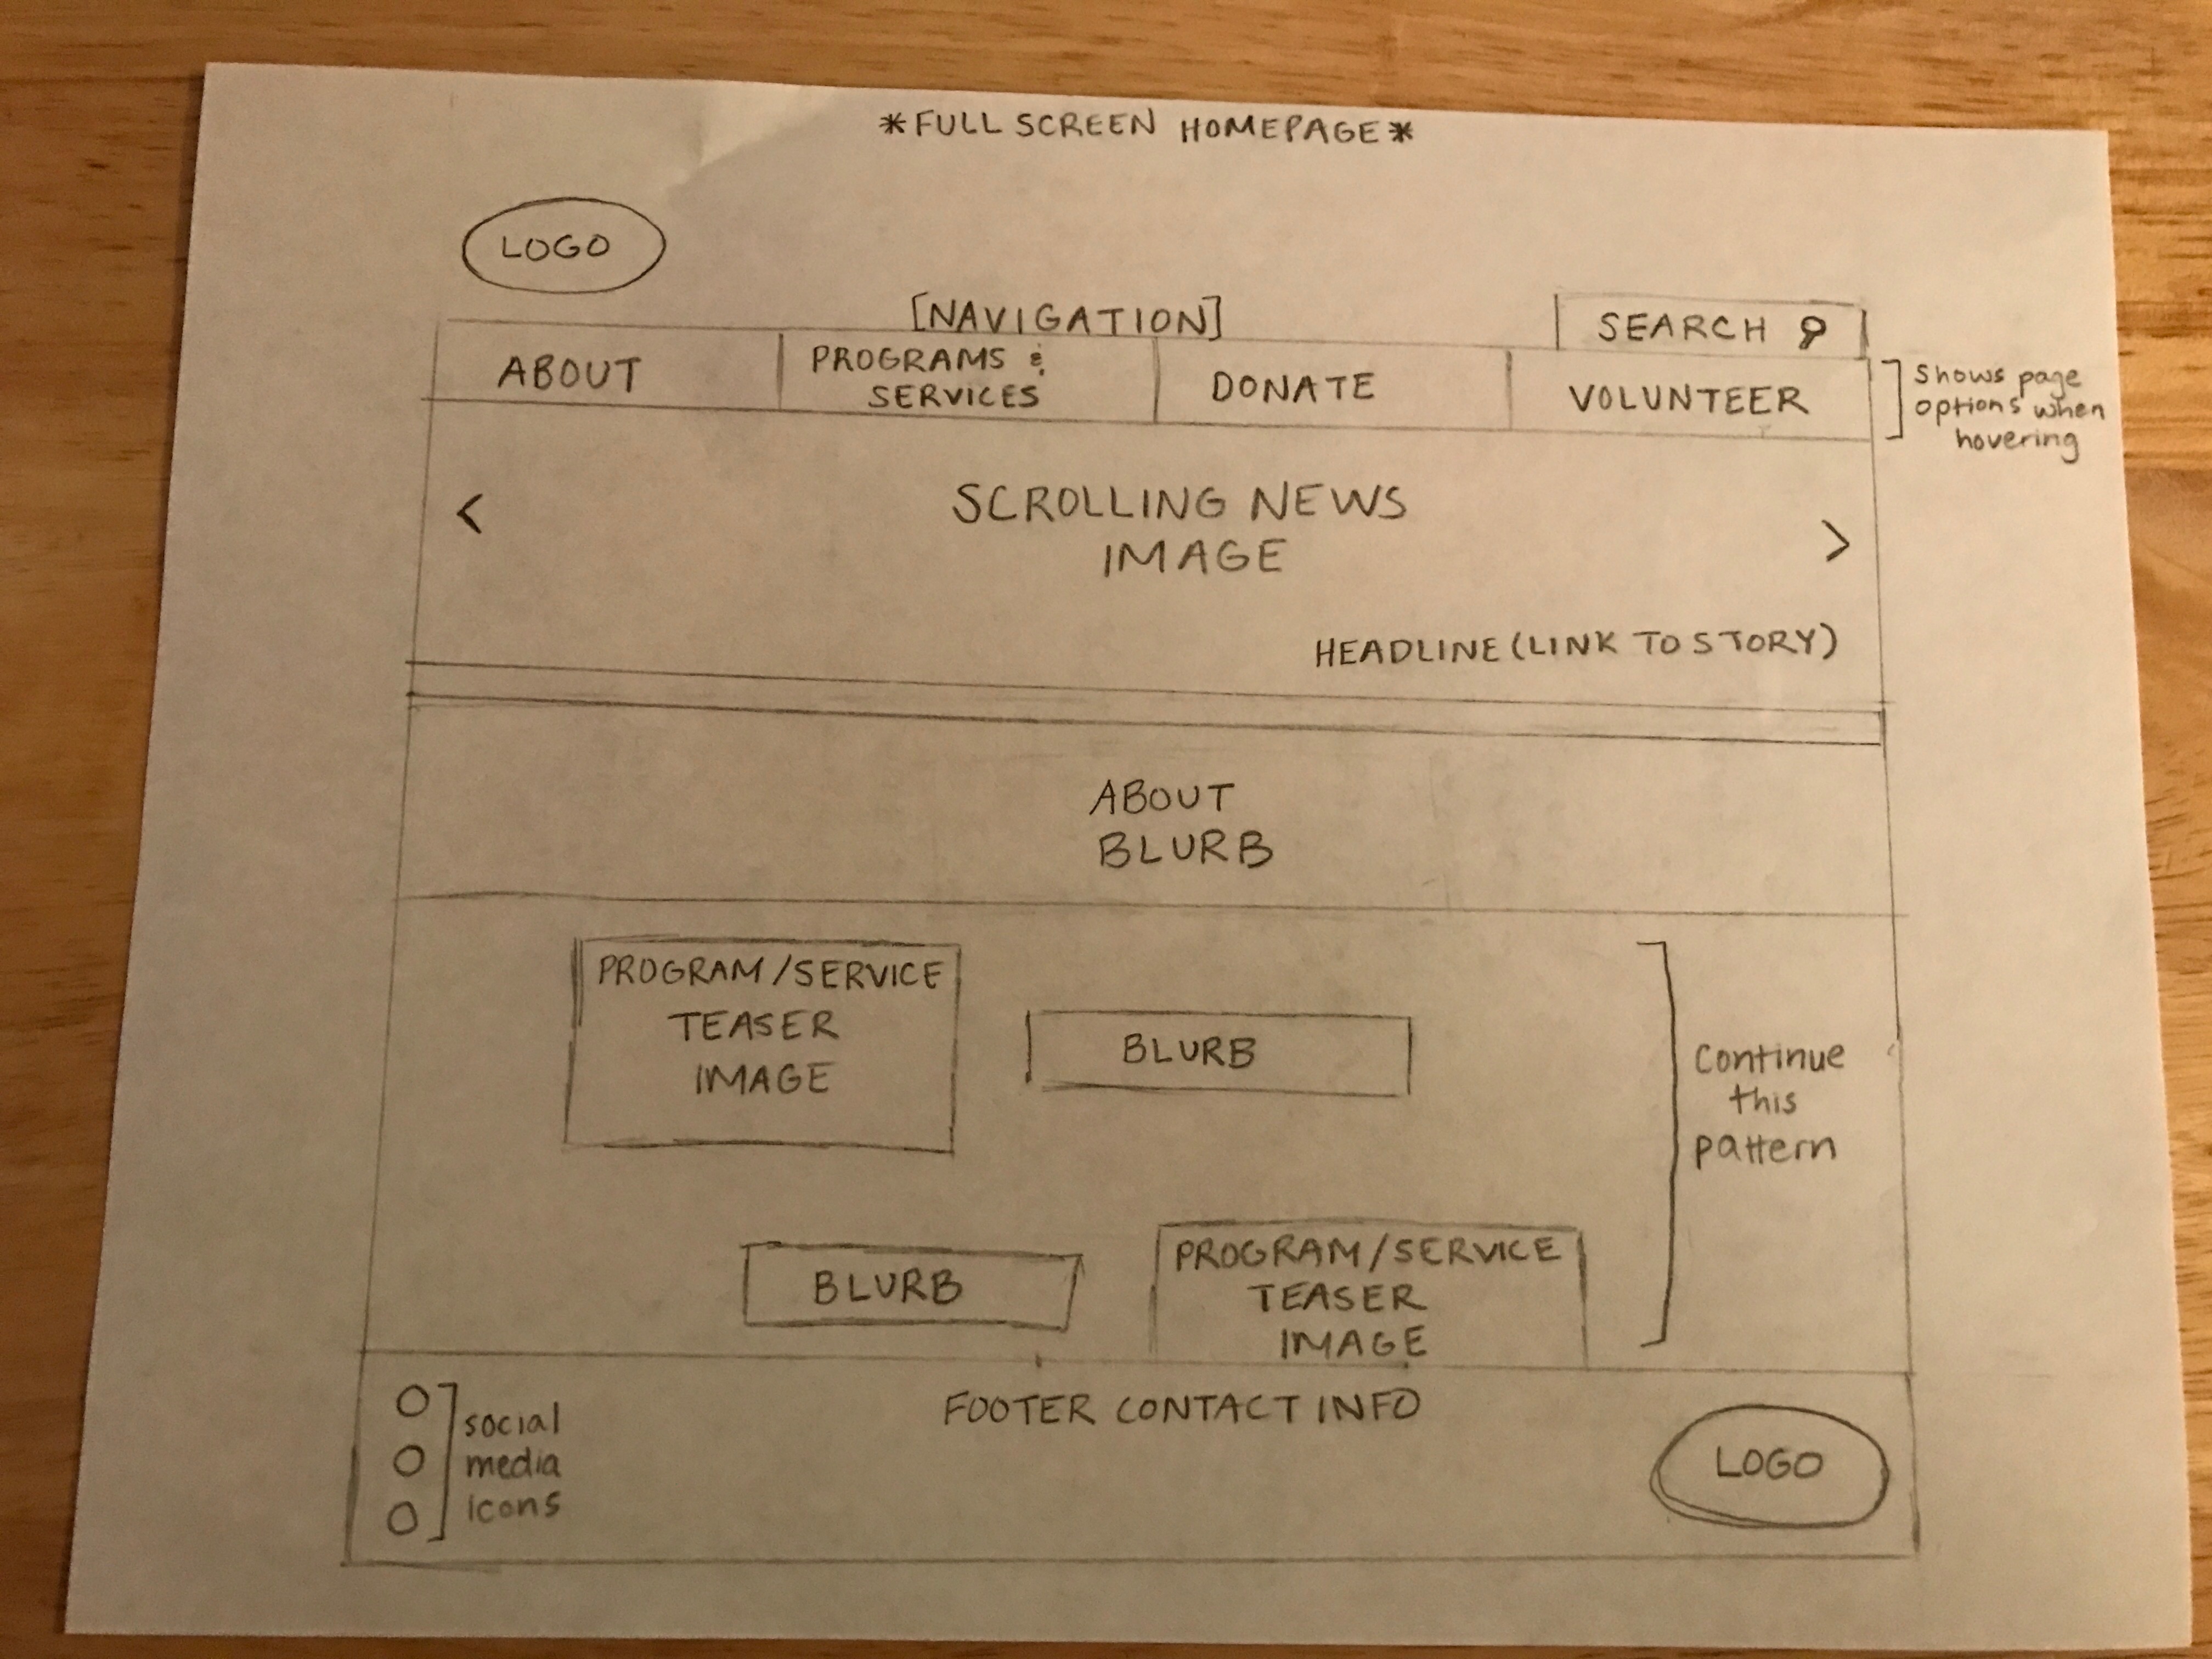 *FULL SCREEN HOMEPAGE*
LOGO
[NAVIGATION]
SEARCH
ABOUT
PROGRAMS &
SERVICES
DONATE
VOLUNTEER
Shows page
options when
hovering
<
SCROLLING NEWS
IMAGE
>
HEADLINE (LINK TO STORY)
ABOUT
BLURB
PROGRAM/SERVICE
TEASER
IMAGE
BLURB
Continue
this
pattern
BLURB
PROGRAM/SERVICE
TEASER
IMAGE
social
media
icons
FOOTER CONTACT INFO
LOGO